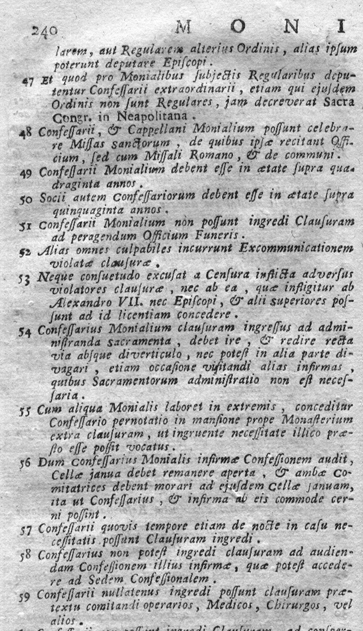 240 MONI
larem, aut Regularem alterius Ordinis, alias ipsum
poterunt deputare Episcopi.
47 Et quod pro Monialibus subjectis Regularibus depu-
tentur Confessarii extraordinarii, etiam qui ejusdem
Ordinis non sunt Regulares, jam decreverat Sacra
Congr. in Neapolitana.
48 Confessarii, & Cappellani Monialium possunt celebra-
re Missas sanctorum, de quibus ipsæ recitant Offi-
cium, sed cum Missali Romano, & de communi.
49 Confessarii Monialium debent esse in ætate supra qua-
draginta annos.
50 Socii autem Confessariorum debent esse in ætate supra
quinquaginta annos.
51 Confessarii Monialium non possunt ingredi Clausuram
ad peragendum Officium Funeris.
52 Alias omnes culpabiles incurrunt Excommunicationem
violatæ clausuræ.
53 Neque consuetudo excusat a Censura inflicta adversus
violatores clausuræ, nec ab ea, quæ infligitur ab
Alexandro VII. nec Episcopi, & alii superiores pos-
sunt ad id licentiam concedere.
54 Confessarius Monialium clausuram ingressus ad admi-
nistranda sacramenta, debet ire, & redire recta
via absque diverticulo, nec potest in alia parte di-
vagari, etiam occasione visitandi alias infirmas,
quibus Sacramentorum administratio non est neces-
saria.
55 Cum aliqua Monialis laboret in extremis, conceditur
Confessario pernotatio in mansione prope Monasterium
extra clausuram, ut ingruente necessitate illico præ-
sto esse possit vocatus.
56 Dum Confessarius Monialis infirmæ Confessionem audit,
Cellæ janua debet remanere aperta, & ambæ Co-
mitatrices debent morari ad ejusdem Cellæ januam,
ita ut Confessarius, & infirma ab eis commode cer-
ni possint.
57 Confessarii quovis tempore etiam de nocte in casu ne-
cessitatis possunt Clausuram ingredi.
58 Confessarius non potest ingredi clausuram ad audien-
dam Confessionem illius infirmæ, quæ potest accede-
re ad Sedem Confessionalem.
59 Confessarii nullatenus ingredi possunt clausuram præ-
textu comitandi operarios, Medicos, Chirurgos, vel
alios.